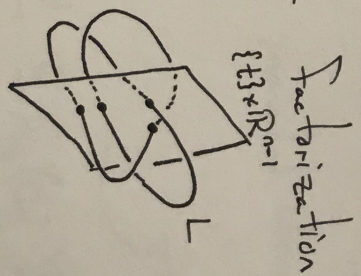 Factorization
{t}×ℝⁿ⁻¹
L